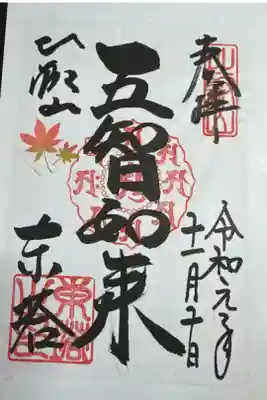 奉拝
令和元年
十一月 日
五智如来
比叡山
東塔